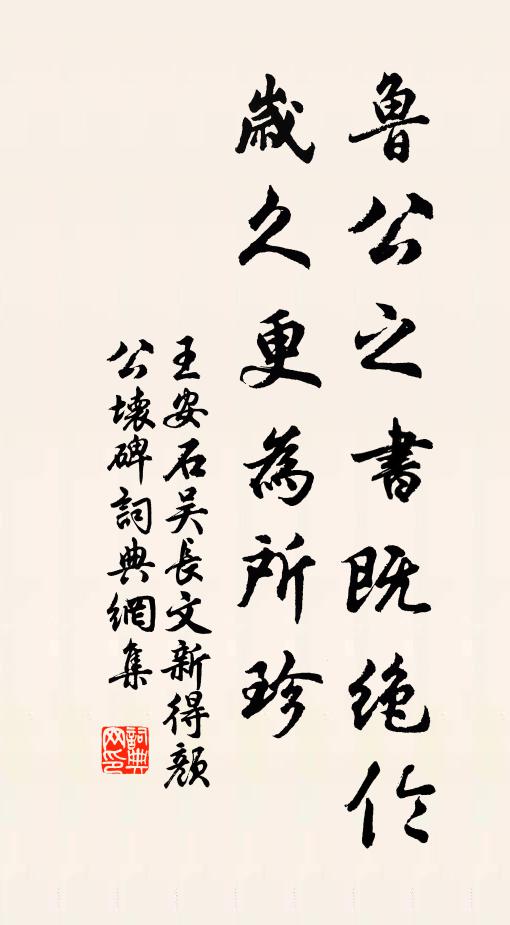 魯公之書既绝伦
歲久更為所珍
王安石吴長文新得顏
公壊碑詞典網集
詞典网印